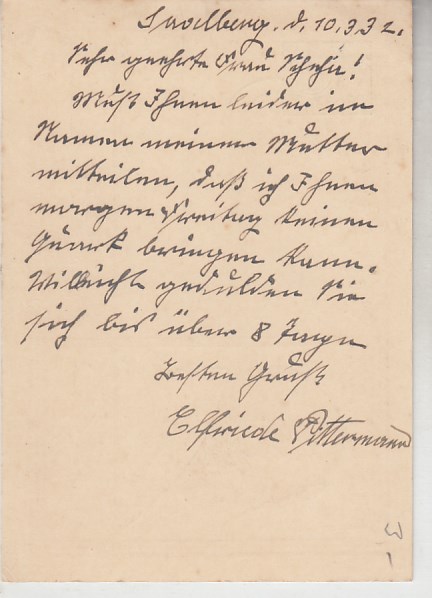 Saalberg. d. 10.3.32.
Sehr geehrte Frau Schön!
Muß Ihnen leider im
Namen meiner Mutter
mitteilen, daß ich Ihnen
morgen Freitag keinen
Quark bringen kann.
Villeicht gedulden Sie
sich bis über 8 Tage
Besten Gruß
Elfriede Pittermann